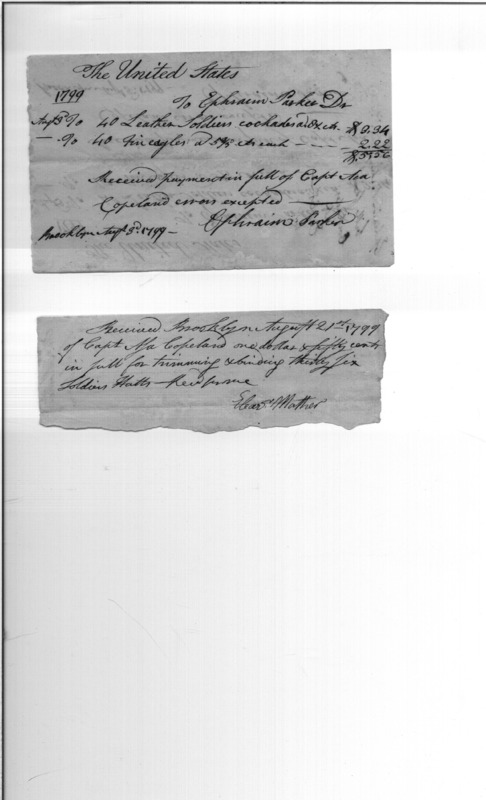 The United States
1799 To Ephraim Parker Dr
Augt 3d To 40 Leather Soldiers cockades a 8⅓ cts $3.34
— To 40 Tin eagles a 5⅝ cts each - - - 2.22
$5.56
Received payment in full of Capt Asa
Copeland errors excepted
Ephraim Parker
Brooklyn Augt 3d. 1799 -
Received Brooklyn August 21st 1799
of Capt Asa Copeland one dollar & fifty cents
in full for trimming & binding thirty six
Soldiers Hatts
Eleazr Mather